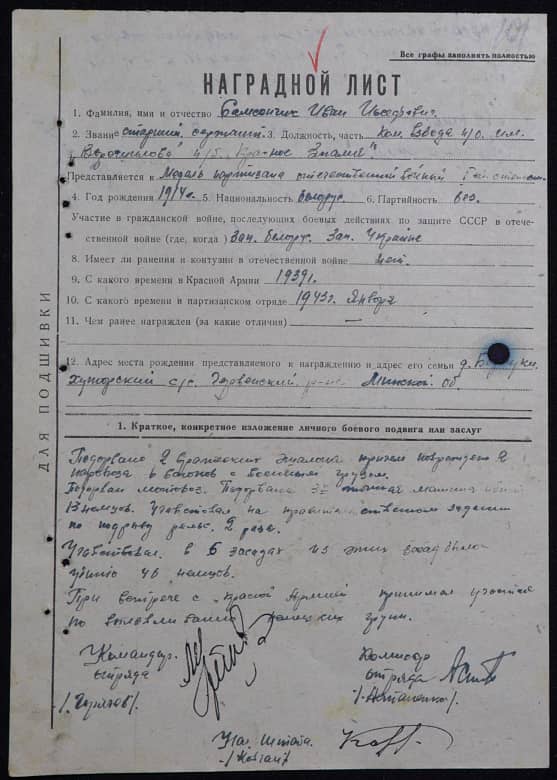 Все графы заполнять полностью
НАГРАДНОЙ ЛИСТ
1. Фамилия, имя и отчество Иван
2. Звание старший сержант 3. Должность, часть ком. взвода п/о. им.
Ворошилова п/б. "Красное Знамя".
Представляется к Медаль партизана отечественной войны
4. Год рождения 1914г. 5. Национальность белорус. 6. Партийность без.
Участие в гражданской войне, последующих боевых действиях по защите СССР в отече-
ственной войне (где, когда) Зап. Белорус. Зап. Украине
8. Имеет ли ранения и контузии в отечественной войне нет.
9. С какого времени в Красной Армии 1939г.
10. С какого времени в партизанском отряде 1943г. Января
11. Чем ранее награжден (за какие отличия) —
12. Адрес места рождения представляемого к награждению и адрес его семьи д.
Хуторский с/с. Минской об.
ДЛЯ ПОДШИВКИ
1. Краткое, конкретное изложение личного боевого подвига или заслуг
Подорвано 2 вражеских эшалона причем повреждено 2
паровоза 6 вагонов с военным грузом.
Подорван мотовоз. Подорвана машина
13 немцев. Участвовал на задании
по подрыву рельс. 2 раза.
Участвовал. в 6 засадах из этих засад было
убито 46 немцев.
При встрече с Красной Армией принимал участие
по вылавливанию немецких групп.
Командир.
отряда
Комисар
отряда
Нач. Штаба.